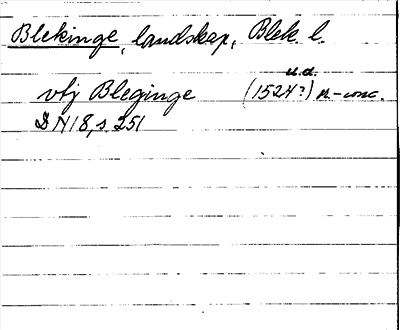 Blekinge, landskap, Blek. l.
u.d.
vtj Bleginge (1524?) n.-conc.
DN 18, s 251